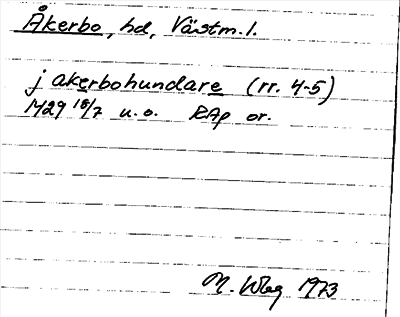 Åkerbo, hd, Västm. l.
j akerbohundare (rr. 4-5)
1429 18/7 u.o. RAp or.
M. Wbg 1973